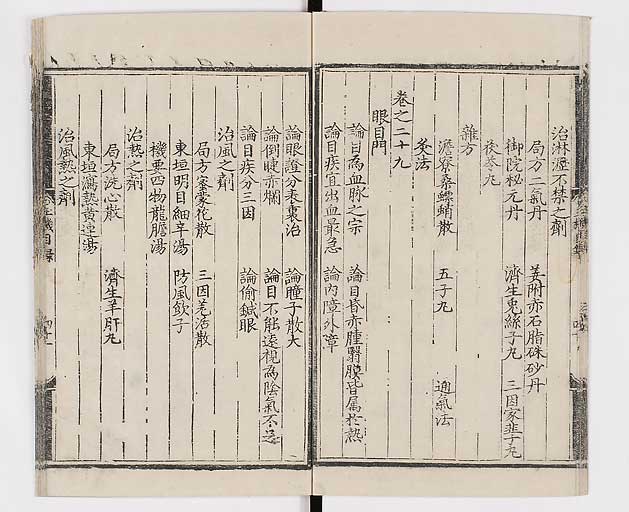 治淋瀝不禁之劑
局方二氣丹　姜附赤石脂硃砂丹
御院秘元丹　濟生兎絲子丸　三因家韭子丸
茯苓丸
雜方
澹寮桑螵蛸散　五子丸　通氣法
灸法
卷之二十九
眼目門
論目為血脉之宗　論目昏赤腫翳膜皆属於熱
論目疾宜出血最急　論內障外障
論眼證分表裏治　論瞳子散大
論倒睫赤爛　論目不能遠視為陰氣不足
論目疾分三因　論偷鍼眼
治風之劑
局方蜜蒙花散　三因羌活散
東垣明目細辛湯　防風飲子
機要四物龍膽湯
治熱之劑
局方洗心散　濟生羊肝丸
東垣瀉熱黄連湯
治風熱之劑